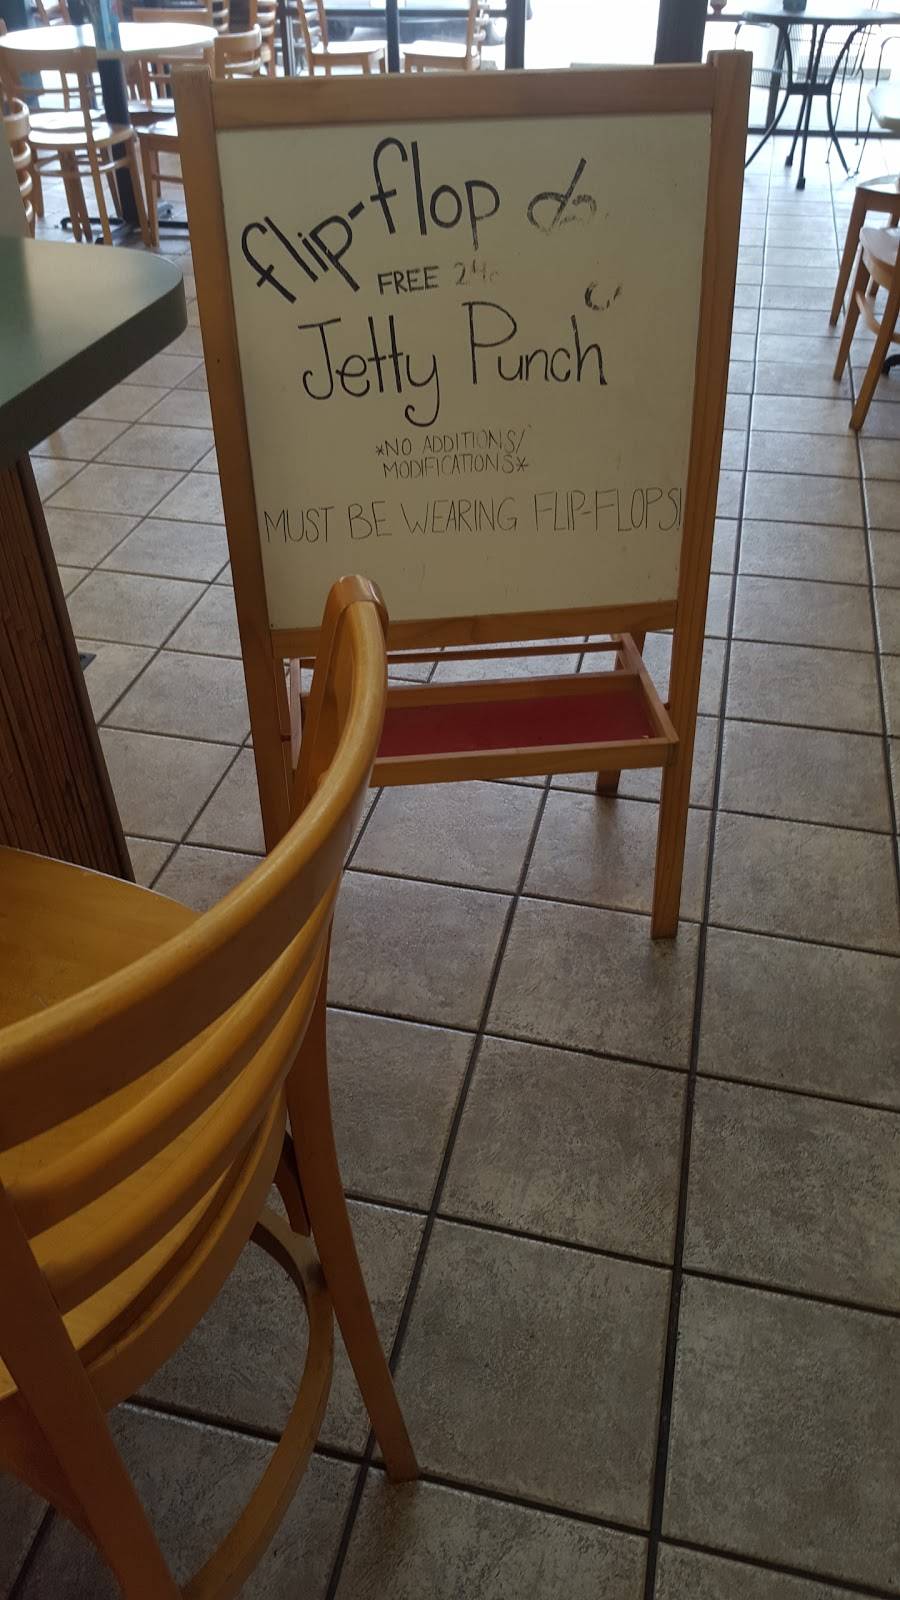 flip-flop
FREE 24
Jetty Punch
*NO ADDITIONS/
MODIFICATIONS*
MUST BE WEARING FLIP-FLOPS!